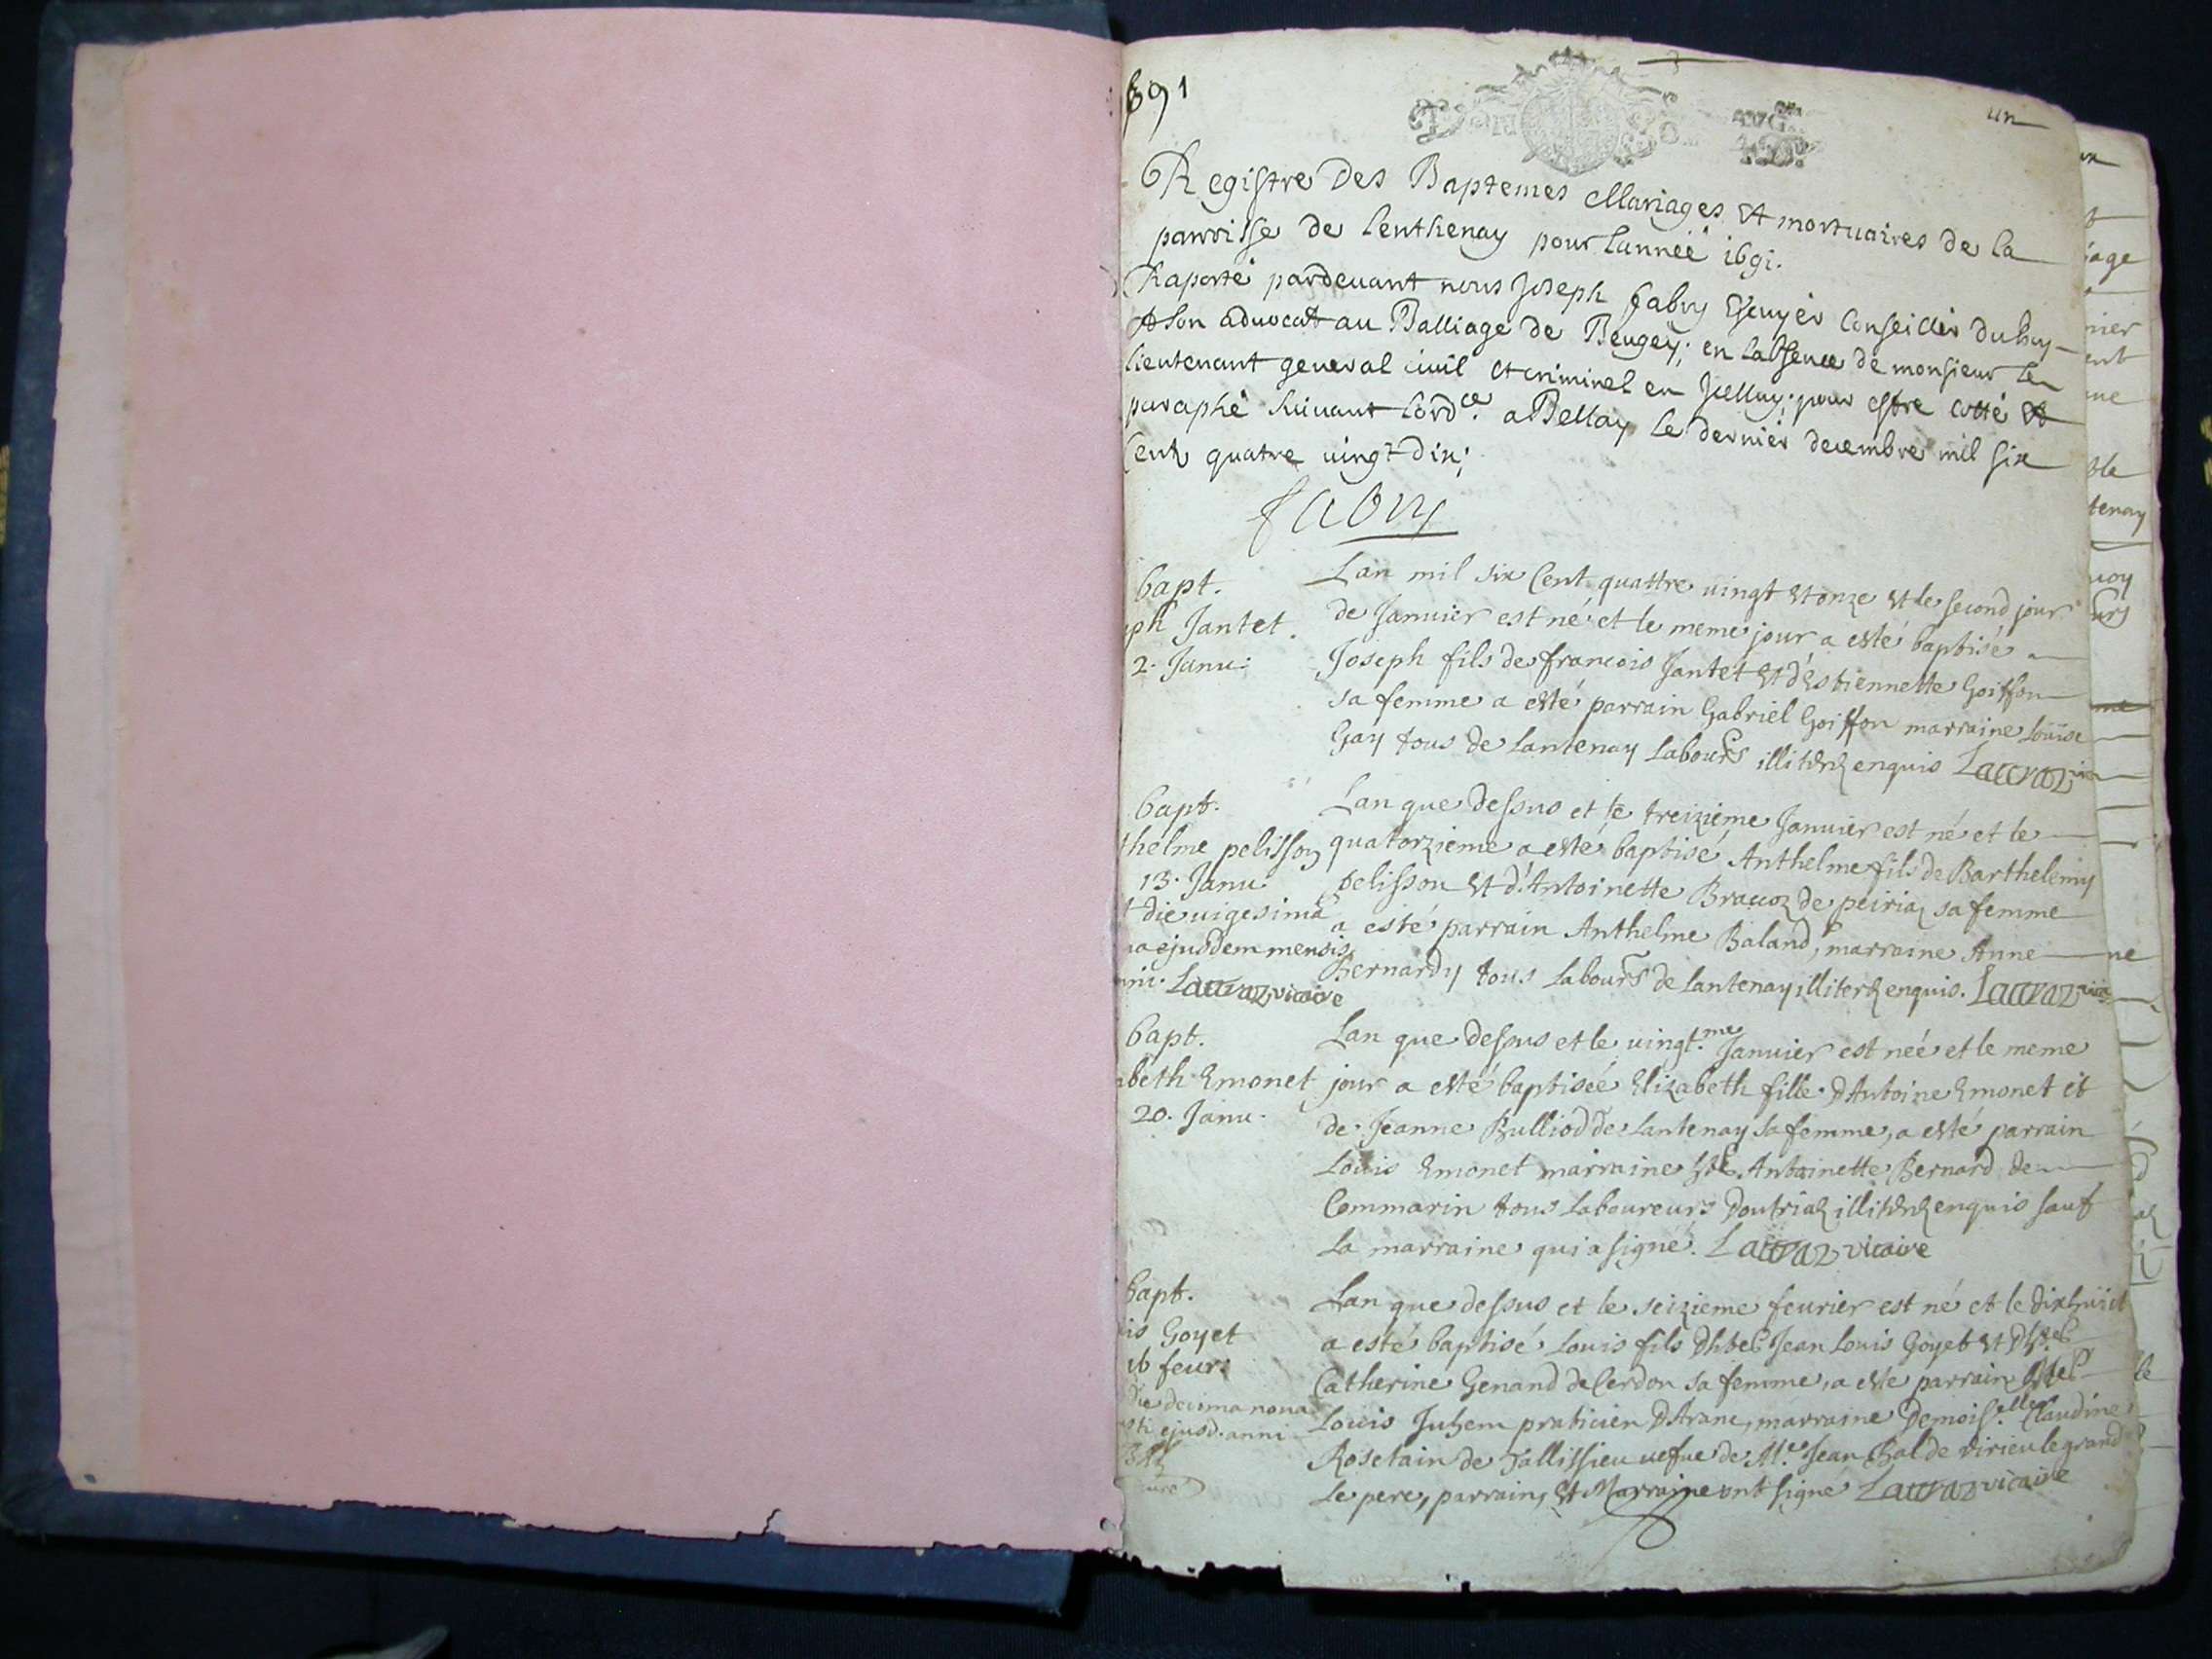 1691
un
Registre Des Baptemes Mariages Et mortuaires de la
parroisse de Lenthenay pour Lannée 1691.
Raporté pardeuant nous Joseph fabry Escuyer Conseiller du Roy
Et son aduocat au Balliage de Beugey; en Labsence de monsieur le
lieutenant general ciuil et criminel en Jcelluy. pour estre cotté Et
paraphé suiuant lord.ce a Bellay le dernier decembre mil six
Cent quatre uingt dix;
fabry
bapt.
ph Jantet.
2. Janu:
Lan mil six Cent quattre uingt Et onze Et le second jour
de Januier est né et le meme jour a esté baptisé
Joseph fils de francois Jantet Et d'Estiennette Goiffon
sa femme a esté parrain Gabriel Goiffon marraine Loüise
Gay tous de Lantenay Labours enquis Lacraz
bapt.
thelme pelisson
13. Janu
die uigesima
ejusdem mensis
Lacraz vicaire
Lan que dessus et le treizieme Januier est né et le
quatorzieme a esté baptisé Anthelme fils de Barthelemy
pelisson Et d'Antoinette de peiriaz sa femme
a esté parrain Anthelme Baland, marraine Anne
Bernardy tous Labours de Lantenay, enquis. Lacraz
bapt.
beth Emonet
20. Janu.
Lan que dessus et le uingt.me Januier est née et le meme
jour a esté baptisée Elizabeth fille D'Antoine Emonet et
de Jeanne Bulliod de Lantenay sa femme, a esté parrain
Louis Emonet marraine Antoinette Bernard de
Commarin tous Laboureurs enquis sauf
La marraine qui a signé. Lacraz vicaire
bapt.
is Goyet
16 feur:
die decima nona
ejusd. anni
Lan que dessus et le seizieme feurier est né et le dixhuict
a esté baptisé Louis fils Jean Louis Goyet Et
Catherine Genand de Cerdon sa femme, a este parrain
Louis Juhem praticien D'Aranc, marraine Demois.elle Claudine
Rosetain de Tallissieu uefue de M.e Jean Bal de virieu le grand
Le pere, parrain, Et Marraine ont signé Lacraz vicaire